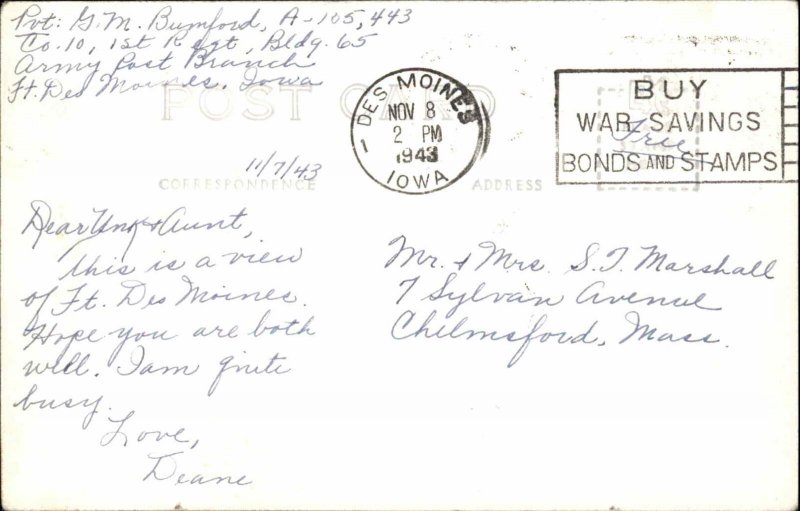 Pvt. G. M. Bumford, A-105,443
Co. 10, 1st Regt, Bldg. 65
Army Post Branch
Ft. Des Moines, Iowa
POST CARD
DES MOINES
NOV 8
2 PM
1943
IOWA
1
BUY
WAR SAVINGS
BONDS AND STAMPS
Free
11/7/43
CORRESPONDENCE
ADDRESS
Dear Unk + Aunt,
This is a view
of Ft. Des Moines.
Hope you are both
well. I am quite
busy.
Love,
Deane
Mr. + Mrs. S. T. Marshall
7 Sylvan Avenue
Chelmsford, Mass.